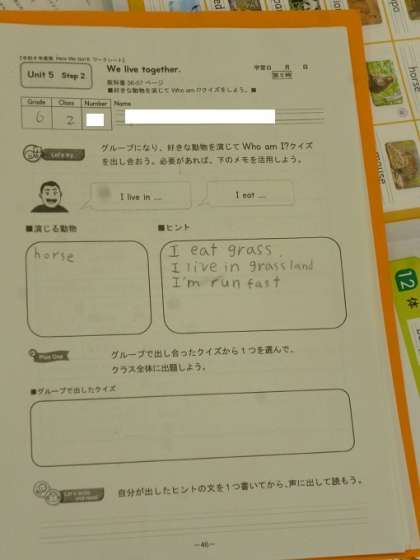 We live together.
Unit 5 Step 2
教科書 56-57 ページ
■好きな動物を演じて Who am I?クイズをしよう。■
学習日 月 日
Grade Class Number Name
6 2
Let's try
グループになり、好きな動物を演じて Who am I?クイズ
を出し合おう。必要があれば、下のメモを活用しよう。
I live in ....
I eat ....
■演じる動物
■ヒント
horse
I eat grass.
I live in grassland
I'm run fast
Plus One
グループで出し合ったクイズから1つを選んで、
クラス全体に出題しよう。
■グループで出したクイズ
Let's write and read
自分が出したヒントの文を1つ書いてから、声に出して読もう。
-46-
horse
mouse
12
体